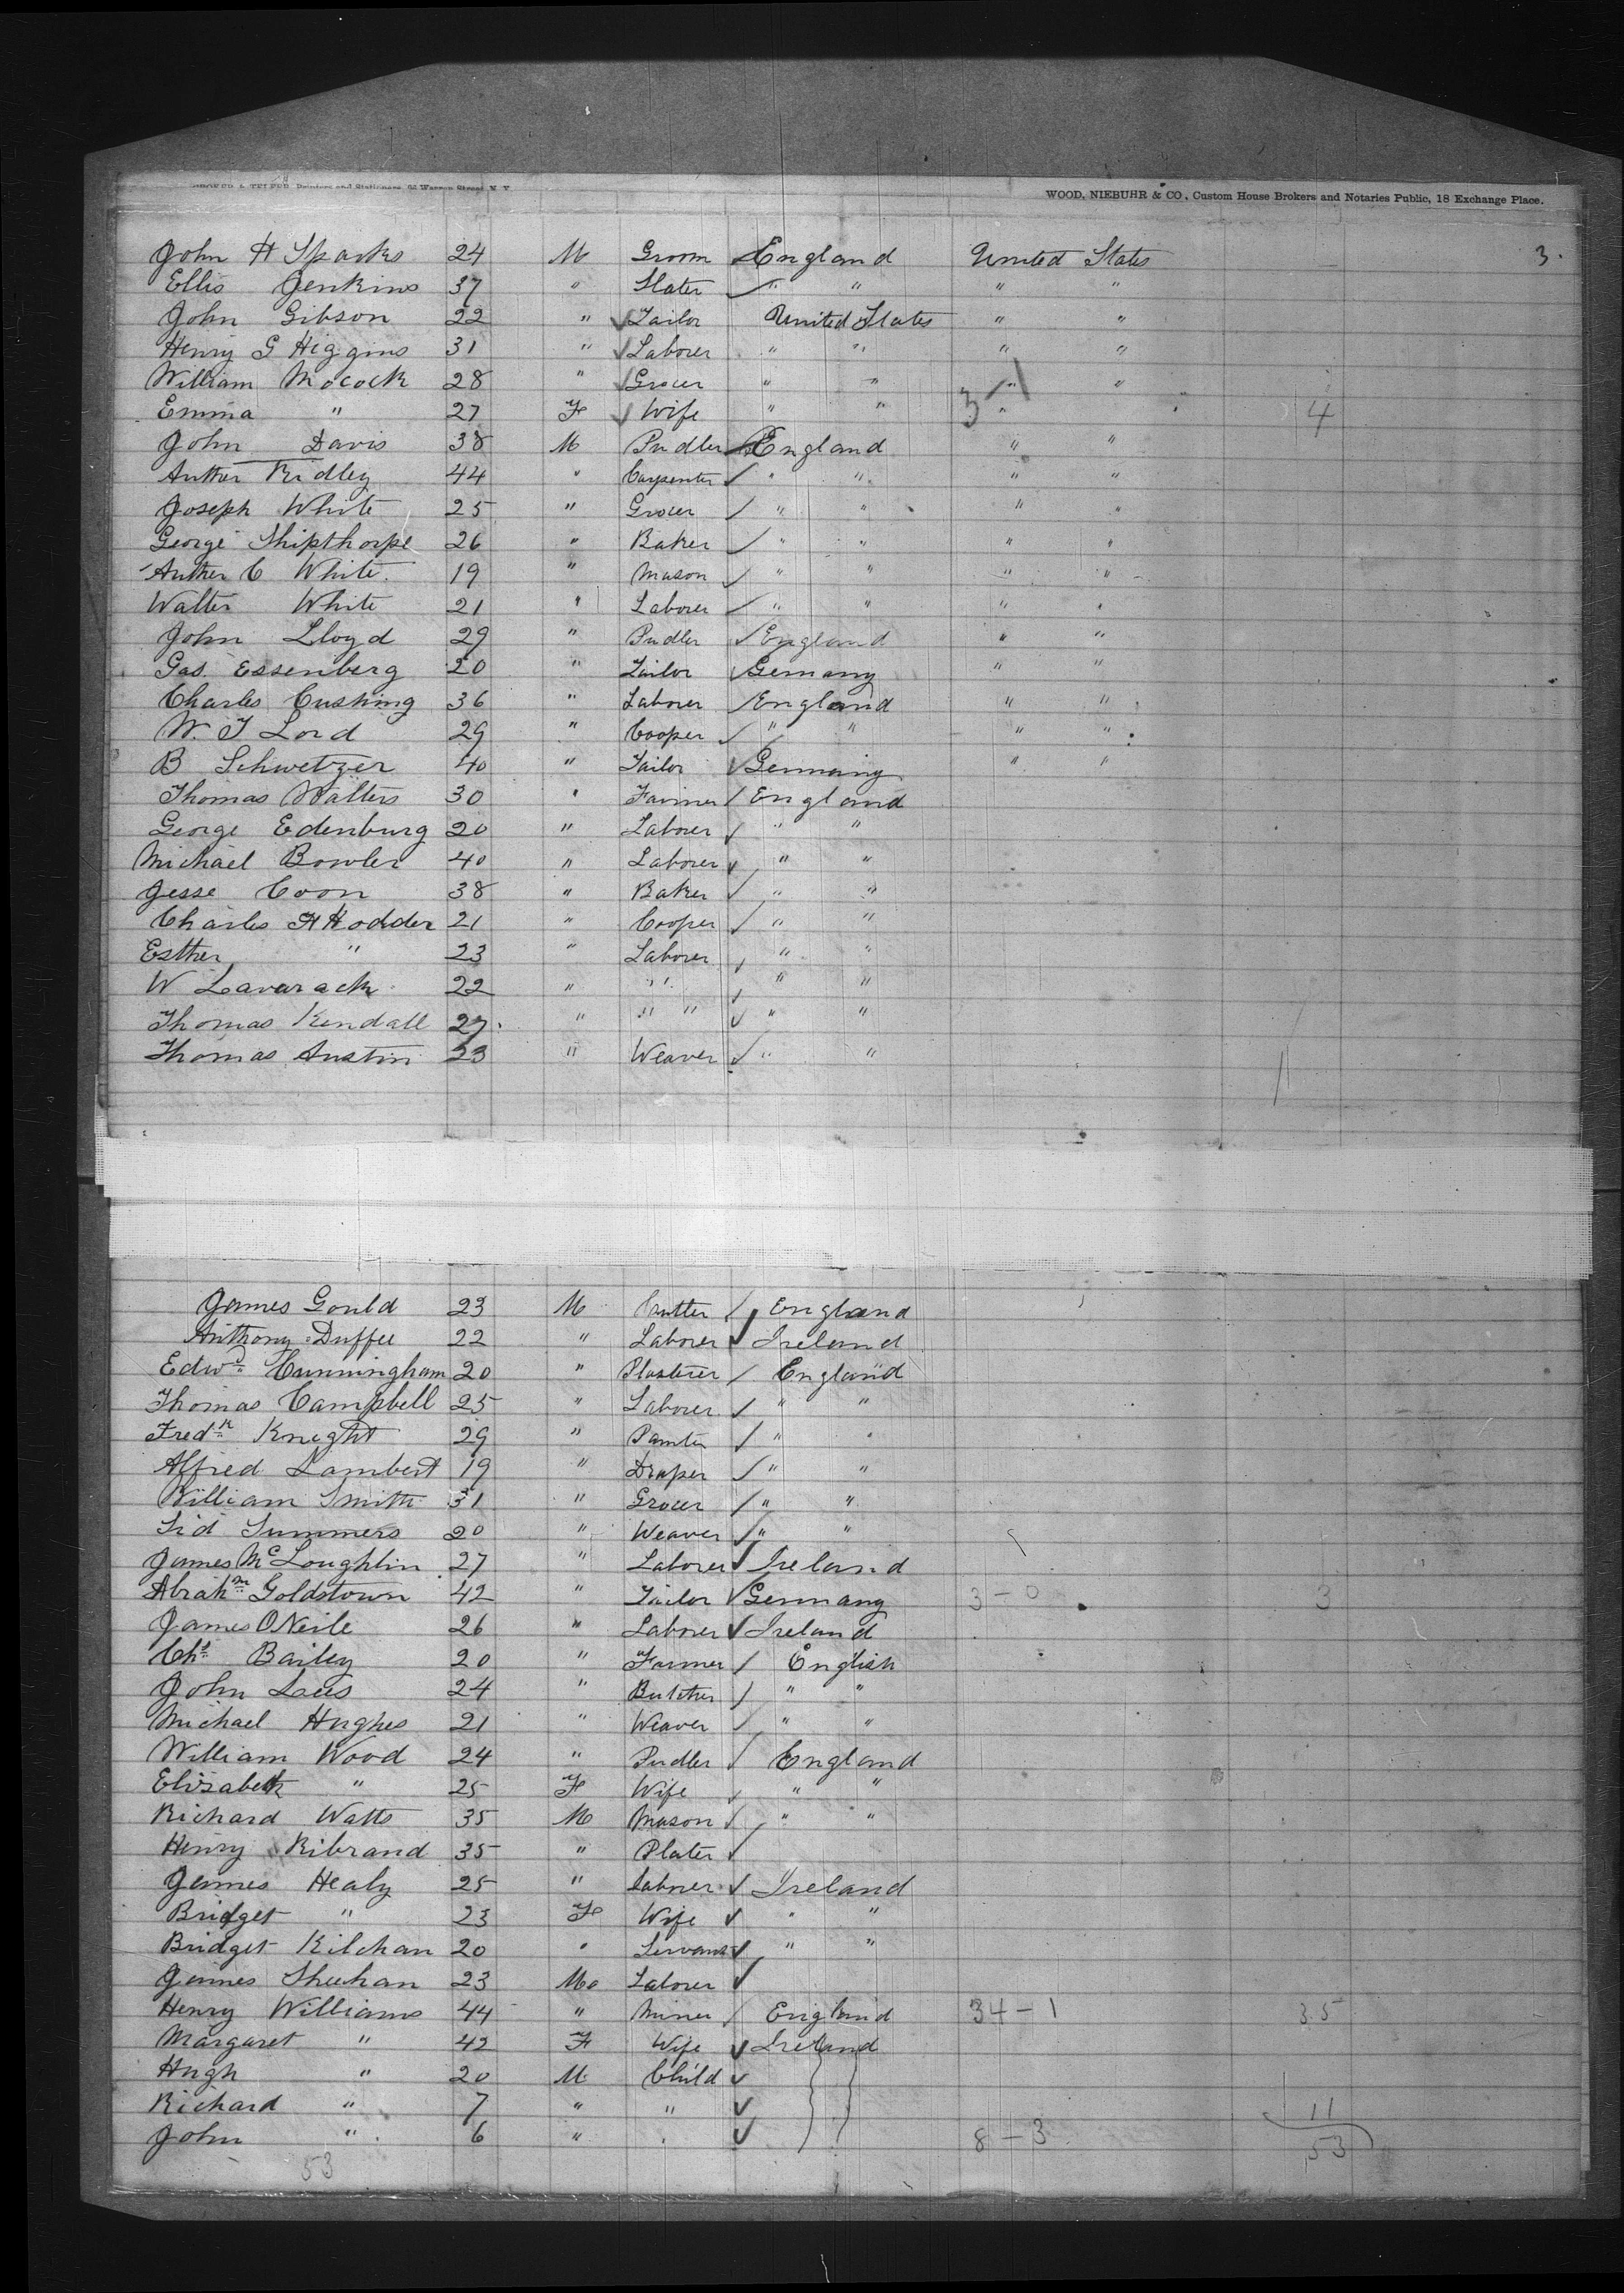 Printers and Stationers, Warren Street, N. Y.
WOOD, NIEBUHR & CO., Custom House Brokers and Notaries Public, 18 Exchange Place.
John H Sparks 24 M Groom England United States 3.
Ellis Jenkins 37 " Slater " " " "
John Gibson 22 " Tailor United States " "
Henry G Higgins 31 " Laborer " " " "
William Mocock 28 " Grocer " " " "
Emma " 27 F Wife " " 3-1 " " 4
John Davis 38 M Pudler England " "
Auther Ridley 44 " Carpenter " " " "
Joseph White 25 " Grocer " " " "
George Shipthorpe 26 " Baker " " " "
Auther C White 19 " Mason " " " "
Walter White 21 " Laborer " " " "
John Lloyd 29 " Pudler England " "
Gas. Essenberg 20 " Tailor Gemany " "
Charles Cushing 36 " Laborer England " "
W. T Lord 29 " Cooper " " " "
B Schwetzer 40 " Tailor Germany " "
Thomas Walters 30 " Farmer England
George Edenburg 20 " Laborer " "
Michael Bowler 40 " Laborer " "
Jesse Coon 38 " Baker " "
Charles H Hodder 21 " Cooper " "
Esther " 23 " Laborer " "
W Lavarack 22 " " " "
Thomas Kendall 27 " " " " "
Thomas Austin 23 " Weaver " "
James Gould 23 M England
Anthony Duffee 22 " Laborer Ireland
Edwd Cunningham 20 " Plasterer England
Thomas Campbell 25 " Laborer " "
Fredk Knight 29 " Painter " "
Alfred Lambert 19 " Draper " "
William Smith 31 " Grocer " "
Sid Summers 20 " Weaver " "
James McLoughlin 27 " Laborer Ireland
Abrahm Goldstown 42 " Tailor Germany 3-0 3
James ONeile 26 " Laborer Ireland
Chs Bailey 20 " Farmer English
John Lees 24 " Butcher " "
Michael Hughes 21 " Weaver " "
William Wood 24 " Pudler England
Elizabeth " 25 F Wife " "
Richard Watts 35 M Mason " "
Henry Ribrand 35 " Plater
James Healy 25 " Laborer Ireland
Bridget " 23 F Wife " "
Bridget Kilchan 20 " Servant " "
James Sheehan 23 M Laborer
Henry Williams 44 " Miner England 34-1 35
Margaret " 42 F Wife Ireland
Hugh " 20 M Child
Richard " 7 " " 11
John " 6 " " 8-3 53
53